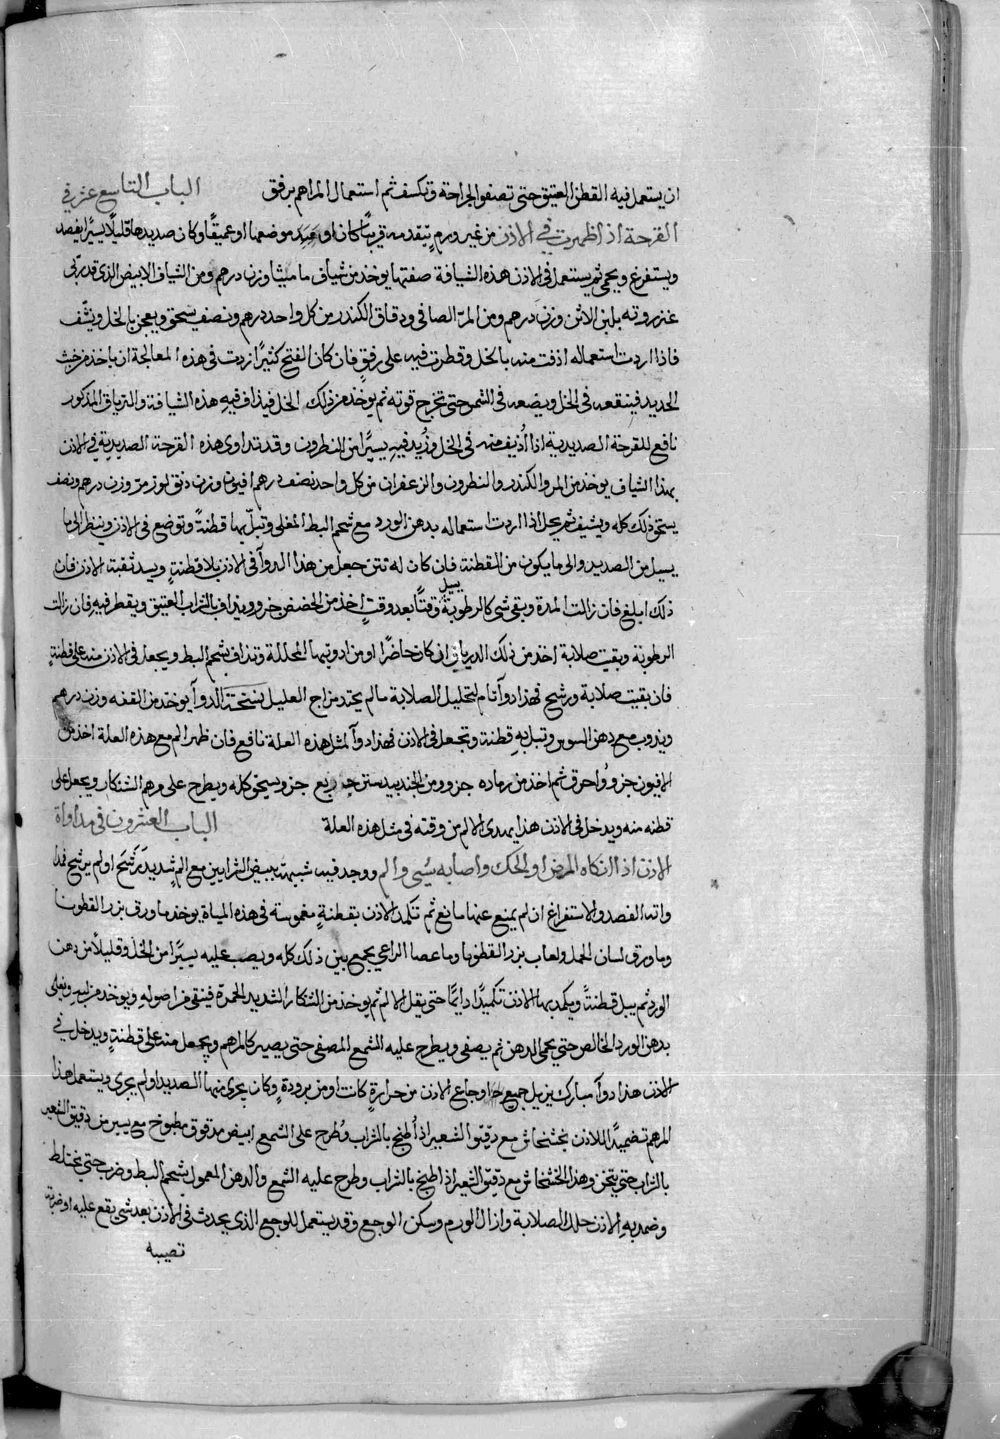 ان يستعمل فيه القطن العتيق حتى تصفو الجراحة وتكسف ثم استعمال المراهم برفق الباب التاسع عشر في
القرحة اذا ظهرت في الاذن من غير ورم يتقدمه قريبًا كان او بعيد موضعها او عميقًا وكان صديدها قليلًا يسيرًا يفصد
ويستفرغ ويحمى ثم يستعمل في الاذن هذه الشيافة صفتها يوخذ من شياف ماميثا وزن درهم ومن الشياف الابيض الذي قد ربي
عنزروته بلبن الاتن وزن درهم ومن المر الصافي ودقاق الكندر من كل واحد درهم ونصف يسحق ويعجن بالخل ويشف
فاذا اردت استعماله اذفت منه بالخل وقطرت فيه على رفق فان كان الفتح كثيرًا زدت في هذه المعالجة ان ياخذ من خبث
الحديد فينقعه في الخل ويضعه في الشمس حتى تخرج قوته ثم يوخذ من ذلك الخل فيذاف فيه هذه الشيافة والترياق المذكور
نافع للقرحة الصديدية اذا أُذيف منه في الخل وزُيد فيه يسيرًا من النطرون وقد تداوى هذه القرحة الصديدية في الاذن
بهذا الشياف يوخذ من المر والكندر والنطرون والزعفران من كل واحد نصف درهم افيون وزن دنق لوز مر وزن درهم ونصف
يسحق ذلك كله ويشيف ثم يحل اذا اردت استعماله بدهن الورد مع شحم البط المغلى وتبل بها قطنةً وتوضع في الاذن وينظر الى ما
يسيل من الصديد والى ما يكون من القطنة فان كان له نتن جعل من هذا الدوآ في الاذن بلا قطنةٍ ويسد ثقبة الاذن فان
ذلك ابلغ فان زالت المدة وبقي شي كالرطوبة يسيل وقتًا بعد وقتٍ اخذ من الحضض جزو ويذاف بالشراب العتيق ويقطر فيه فان زالت
الرطوبة وبقيت صلابة اخذ من ذلك الدرياق ان كان حاضرًا او من ادويتها المحللة وتذاف بشحم البط ويجعل في الاذن منه على قطنةٍ
فان بقيت صلابة ورشح فهذا دوآ تام لتحليل الصلابة ما لم يحتد مزاج العليل نسخة الدوآ يوخذ من القنه وزن درهم
ويذوب مع دهن السوسن وتبل به قطنة وتجعل في الاذن فهذا دوآ لمثل هذه العلة نافع فان ظهر الم مع هذه العلة اخذ من
الافيون جزو وُاحرق ثم اخذ من رماده جزو ومن الجندبيدستر ربع جزو يسحق كله ويطرح على مرهم الشنكار ويجعل على
قطنه منه ويدخل في الاذن هذا يهدي الالم من وقته في مثل هذه العلة الباب العشرون في مداواة
الاذن اذا انكاه المرض او الحك واصابه شي والم ووجد فيه شبيهة ببيض الشرابين مع الم شديد يَرشح او لم يرشح فمداواته
الفصد والاستفراغ ان لم يمنع عنها مانع ثم تكمد الاذن بقطنةٍ مغموسة في هذه المياه يوخذ ما ورق بزر القطونا
وما ورق لسان الحمل ولعاب بزر القطونا وما عصا الراعي يجمع بين ذلك كله ويصب عليه يسيرًا من الخل وقليلًا من دهن
الورد ثم يبل قطنةً ويكمد بها الاذن تكميدًا دايمًا حتى يقل الالم ثم يوخذ من الشنكار الشديد الحمرة فينقى من اصوله ويوخذ منه ويغلى
بدهن الورد الخالص حتى يحمى الدهن ثم يصفى ويطرح عليه الشمع المصفى حتى يصير كالمرهم ويجعل منه على قطنةٍ ويدخل في
الاذن هذا دوآ مبارك يزيل جميع اوجاع الاذن من حرارةٍ كانت او من برودةٍ وكان يجري منها الصديد او لم يجري ويستعمل هذا
المرهم تضميدًا للاذن بخشخاش مع دقيق الشعير اذ أُطبخ بالشراب وطُرح على الشمع ابيض مدقوق مطبوخ مع يسير من دقيق الشعير
بالشراب حتى يتخن وهذا الخشخاش مع دقيق الشعير اذ اطبخ بالشراب وطرح عليه الشمع والدهن المعمول بشحم البط وضرب حتى يختلط
وضمد به الاذن حلل الصلابة وازال الورم وسكن الوجع وقد يستعمل للوجع الذي يحدث في الاذن بعد شي يقع عليه او ضربة
تصيبه